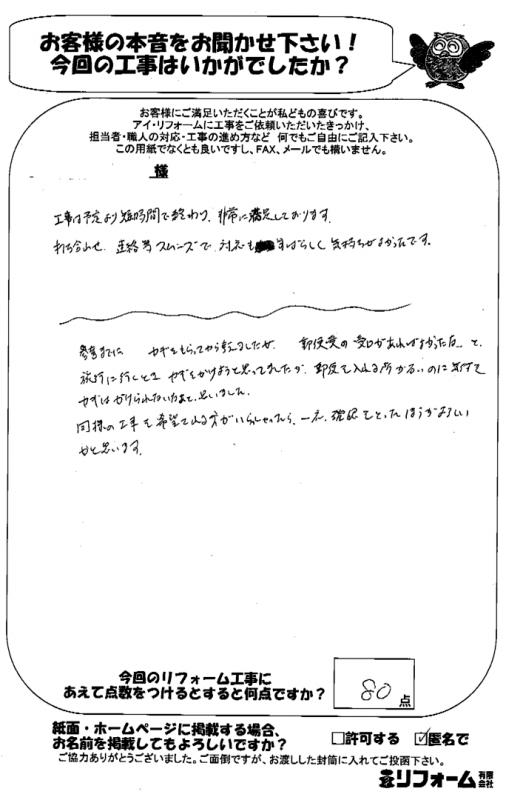 お客様の本音をお聞かせ下さい！
今回の工事はいかがでしたか？
お客様にご満足いただくことが私どもの喜びです。
アイ・リフォームに工事をご依頼いただいたきっかけ、
担当者・職人の対応・工事の進め方など 何でもご自由にご記入下さい。
この用紙でなくとも良いですし、FAX、メールでも構いません。
様
工事は予定より短時間で終わり、非常に満足しております。
打ち合わせ、連絡等スムーズで、対応もすばらしく気持ちがよかったです。
参考までに カギをもらってから考えましたが、郵便受の受口があればよかったな…と、
旅行に行くときカギをかけようと思ってましたが、郵便を入れる所がないのに気付て
カギはかけられないなぁと、思いました。
同様の工事を希望される方がいらっしゃったら、一応、確認をとったほうがよろしい
かと思います。
今回のリフォーム工事に
あえて点数をつけるとすると何点ですか？
80点
紙面・ホームページに掲載する場合、
お名前を掲載してもよろしいですか？
□許可する ☑匿名で
ご協力ありがとうございました。ご面倒ですが、お渡しした封筒に入れてご投函下さい。
リフォーム有限会社